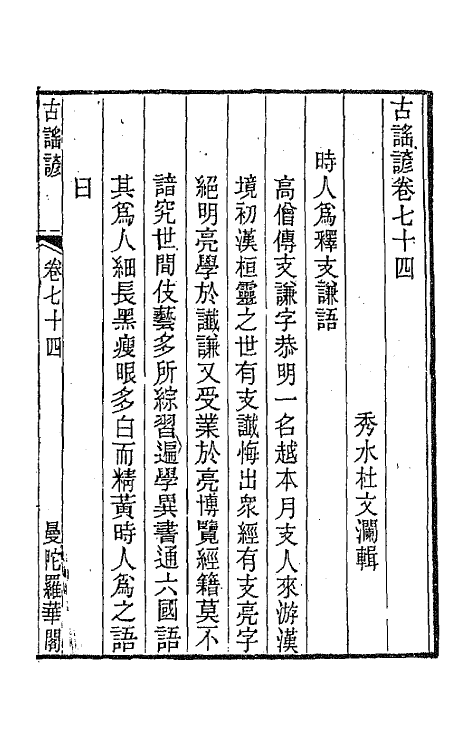 古謠諺卷七十四
秀水杜文瀾輯
時人爲釋支謙語
高僧傳支謙字恭明一名越本月支人來游漢
境初漢桓靈之世有支讖悔出衆經有支亮字
絕明亮學於讖謙又受業於亮博覽經籍莫不
諳究世間伎藝多所綜習遍學異書通六國語
其爲人細長黑瘦眼多白而精黃時人爲之語
曰
古謠諺 卷七十四 曼陀羅華閣